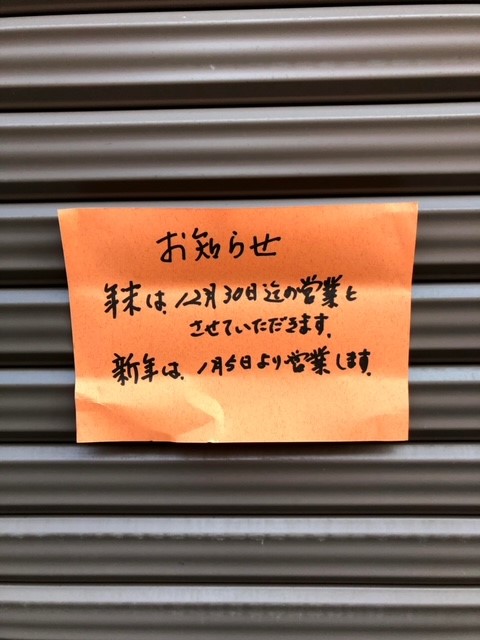 お知らせ
年末は、12月30日迄の営業と
させていただきます。
新年は、1月5日より営業します。